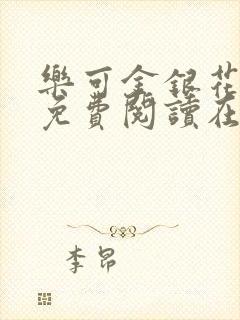 樂可金銀花
免費閱讀在
李昂